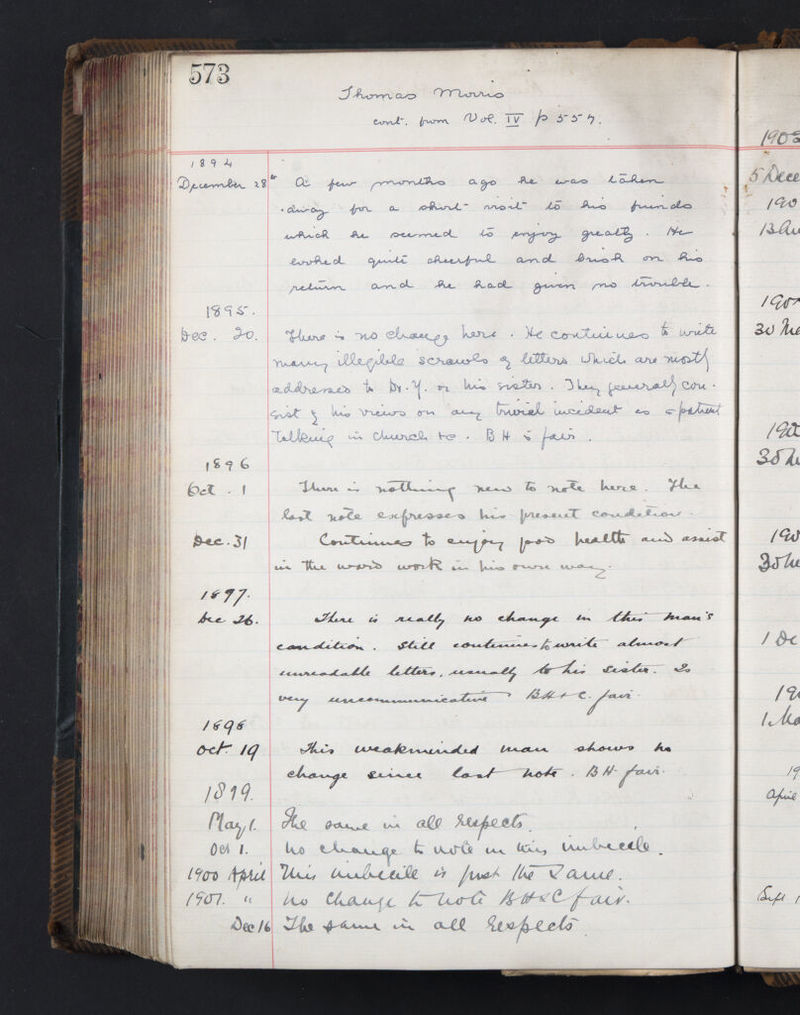 573
Thomas Morris
cont. from Vol. IV p 557.
1894
December 28th A few months ago he was taken
away for a short visit to his friends
which he seemed to enjoy greatly. He
looked quite cheerful and brisk on his
return and he had given no trouble.
1895.
Dec. 20. There is no change here. He continues to write
many illegible scrawls of letters which are mostly
addressed to Dr. Y. or his sister. They generally con-
sist of his views on any trivial incident as a patient
talking in church &c. BH is fair.
1896
Oct. 1 There is nothing new to note here. The
last note expresses his present condition.
Dec. 31 Continues to enjoy good health and assist
in the ward work in his own way.
1897.
Dec 26. There is really no change in this man's
condition. Still continues to write almost
unreadable letters, usually to his sister. Is
very uncommunicative. BH & C. fair.
1898
Oct. 19 This weakminded man shows no
change since last note. BH fair.
1899.
May 1. The same in all respects.
Oct 1. No change to note in this imbecile.
1900 April This imbecile is just the same.
1901. " No change to note BH & C fair.
Dec 16 The same in all respects
5 Dece
190
190
30
190
1 De
April
Sept 1